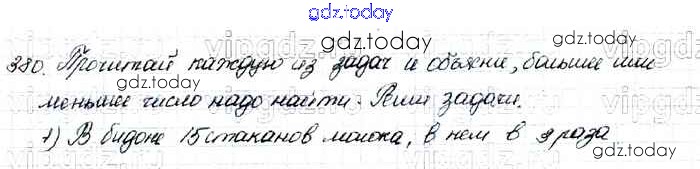 gdz.today
gdz.today
380. Прочитай каждую из задач и объясни, большее или
gdz.today
меньшее число надо найти. Реши задачи.
gdz.today
1) В бидоне 15 стаканов молока, в нем в 3 раза